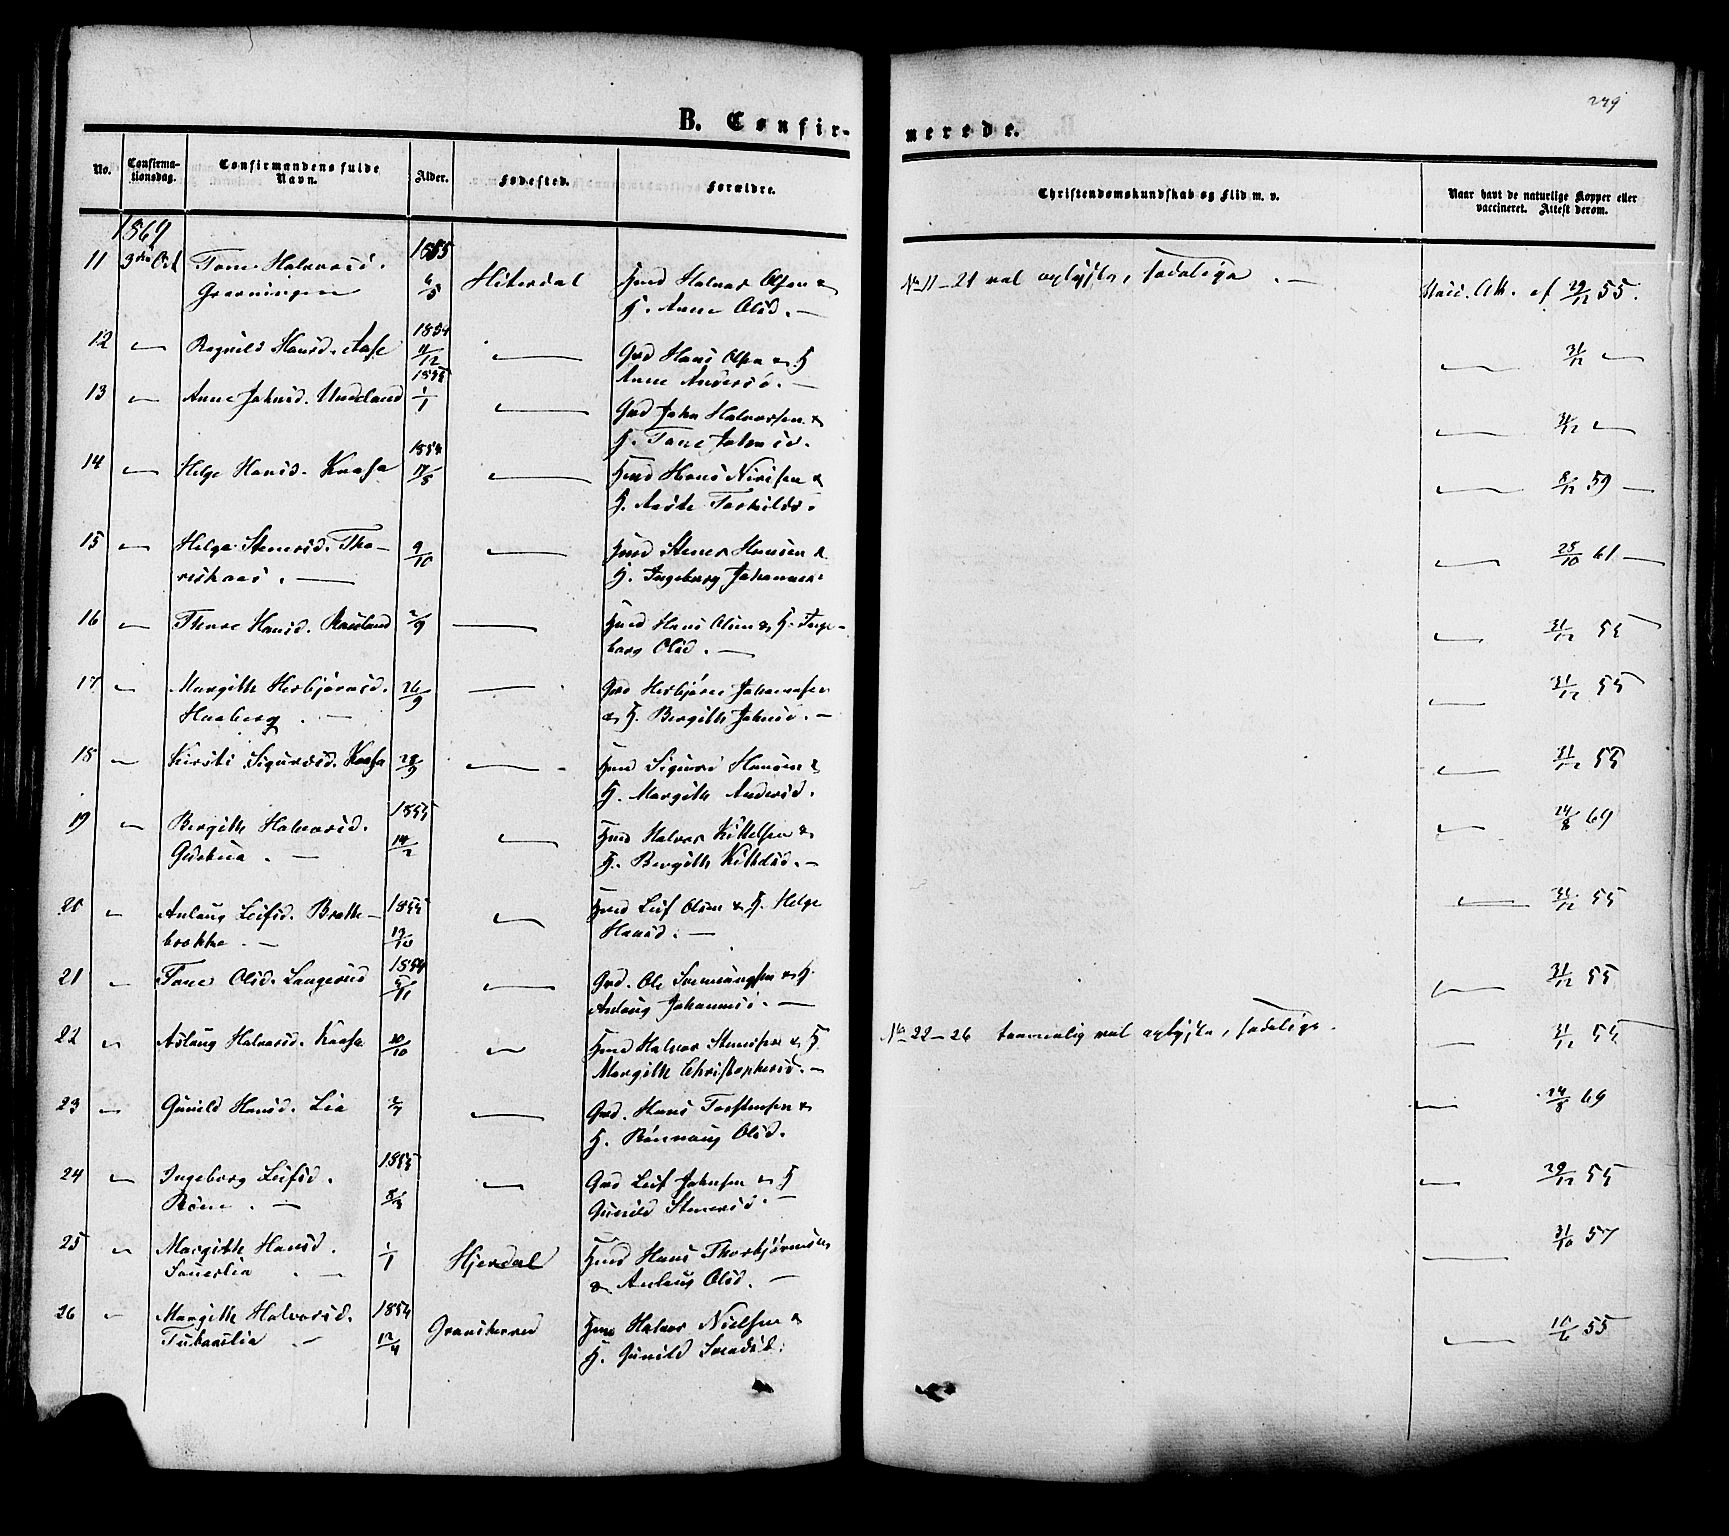 249
B. Confir-
merede.
No.
Confirma-
tionsdag.
Confirmandens fulde
Navn.
Alder.
Fødested.
Forældre.
Christendomskundskab og Flid m. v.
Naar havt de naturlige Kopper eller
vaccineret. Attest derom.
1869
11 3die Oct Tone Halvorsd. 1855 6/5 Hiterdal Hmd Halvor Olsen &
Grovningen H. Anne Olsd. —
No 11-21 vel oplyste, sædelige. — Vacc. Att. af 29/12 55.
12 — Ragnild Hansd. Aase 1854 11/12 — Grd Hans Olsen & H
Anne Andersd. —
— 31/12 —
13 — Anne Johnsd. Undeland 1855 1/1 — Grd John Halvorsen &
H. Tone Johnsd.
— 31/12 —
14 — Helge Hansd. Kaasa 1854 17/8 — Hmd Hans Nirisen &
H. Aaste Torkildsd.
— 8/12 59 —
15 — Helge Stenersd. Tho- 9/10 — Hmd Stener Hansen &
H. Ingeborg Johannes-
— 25/10 61 —
16 — Thone Hansd. 2/9 — Hmd Hans Olsen & H. Inge-
borg Olsd. —
— 31/12 55
17 — Margithe Herbjørnsd. 26/9 — Grd Herbjørn Johannesen
Haaberg. — & H. Bergithe Johnsd. —
— 31/12 55
18 — Kirsti Sigurdsd. Kaasa 28/9 — Hmd Sigurd Hansen &
H. Margithe Andersd.
— 31/12 55
19 — Bergithe Halvorsd. 1855 14/2 — Hmd Halvor Kittelsen &
. — H. Bergithe Kittelsd. —
— 24/8 69
20 — Anlaug Leifsd. Bratte- 1855 — Hmd Leif Olsen & H. Helge
brokke. — Hansd. —
— 31/12 55
21 — Tone Olsd. Langerud 1854 5/11 — Grd. Ole Svenungsen & H.
Anlaug Johannesd. —
— 31/12 55
22 — Aslaug Halvorsd. Kaasa 20/10 — Hmd Halvor Stenersen & H.
Margithe Christophersd. —
No 22-26 temmelig vel oplyste, sædelige. — 31/12 55
23 — Gunild Hansd. Lia 2/7 — Grd. Hans Torstensen &
H. Rønnaug Olsd.
— 24/8 69
24 — Ingeborg Leifsd. 1855 — Grd Leif Johnsen & H
. — Gunild Stenersd. —
— 29/12 55
25 — Margithe Hansd. 1/1 Hjerdal Hmd Hans Thorbjørnsen
. — & Anlaug Olsd. —
— 31/10 57
26 — Margithe Halvorsd. 1854 12/4 Gransherred Hmd Halvor Nielsen &
. — H. Gunild
— 55